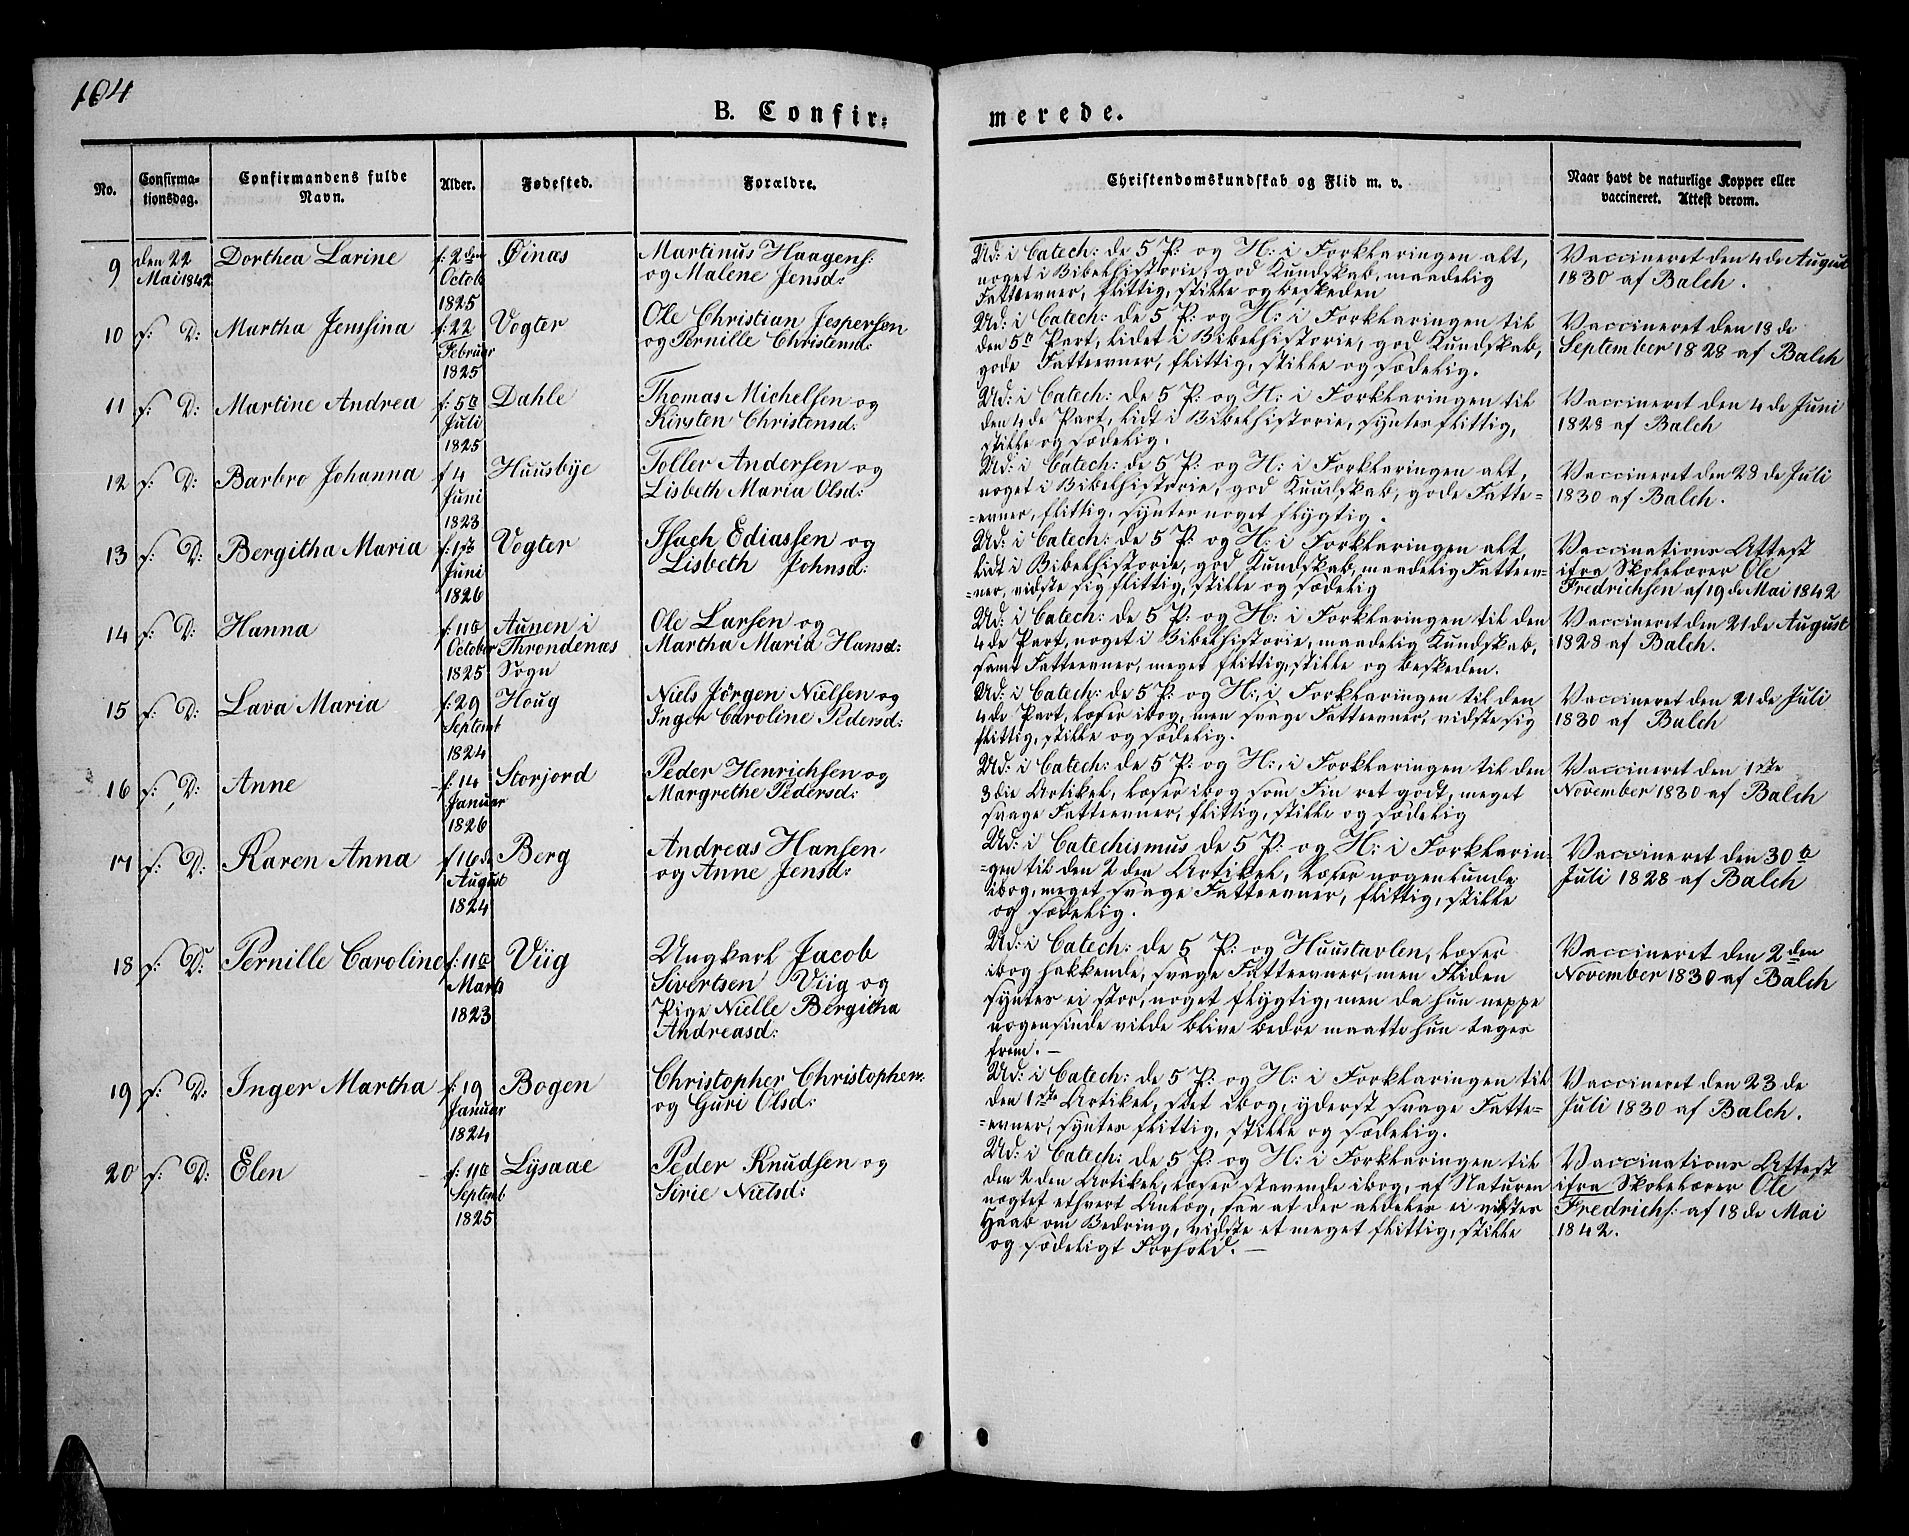 104
B. Confir=
merede.
No.
Confirma-
tionsdag.
Confirmandens fulde
Navn.
Alder.
Fødested.
Forældre.
Christendomskundskab og Flid m. v.
Naar havt de naturlige Kopper eller
vaccineret. Attest derom.
9 den 22 Dorthea Larine f: 2den Øinæs Martinus Haagens:
Mai 1842 October og Malene Jensd:
1825
Ud: i Catech: de 5 P: og H: i Forklaringen alt,
noget i Bibelhistorie, god Kundskab, maadelig
Fatteevner, flittig, stille og beskeden
Vaccineret den 4de August
1830 af Balch.
10 f: D: Martha Jenssina f: 22 Vogter Ole Christian Jespersen
Februar og Pernille Christensd:
1825
Ud: i Catech: de 5 P: og H: i Forklaringen til
den 5te Part, lidet i Bibelhistorie, god Kundskab,
gode Fatteevner, flittig, stille og sædelig.
Vaccineret den 18de
September 1828 af Balch
11 f: D: Martine Andrea f: 5te Dahle Thomas Michelsen og
Juli Kirsten Christensd:
1825
Ud: i Catech: de 5 P: og H: i Forklaringen til
den 4de Part, lidt i Bibelhistorie, syntes flittig,
stille og sædelig.
Vaccineret den 4de Juni
1828 af Balch
12 f: D: Barbro Johanna f 4 Huusbÿe Toller Andersen og
Juni Lisbeth Maria Olsd:
1823
Ud: i Catech: de 5 P: og H: i Forklaringen alt,
noget i Bibelhistorie, god Kundskab, gode Fatte=
=evner, flittig, syntes noget flygtig.
Vaccineret den 28de Juli
1830 af Balch.
13 f: D: Bergitha Maria f: 1ste Vogter Isach Ediassen og
Juni Lisbeth Johnsd:
1826
Ud: i Catech: de 5 P: og H: i Forklaringen alt,
lidt i Bibelhistorie, god Kundskab, maadelig Fatteev=
=ner, vidste sig flittig, stille og sædelig
Vaccinations Attest
ifra Skolelærer Ole
Fredrichsen af 19de Mai 1842
14 f: D: Hanna f: 11te Aunen i Ole Larsen og
October Throndenæs Martha Maria Hansd:
1825 Sogn
Ud: i Catech: de 5 P: og H: i Forklaringen til den
4de Part, noget i Bibelhistorie, maadelig Kundskab,
samt Fatteevner, meget flittig, stille og beskeden.
Vaccineret den 21de August
1828 af Balch.
15 f: D: Lava Maria f: 29 Houg Niels Jörgen Nielsen og
Septemb Inger Caroline Pedersd:
1824
Ud: i Catech: de 5 P: og H: i Forklaringen til den
4de Part, læser ibog, men svage Fatteevner, vidste sig
flittig, stille og sædelig.
Vaccineret den 21de Juli
1830 af Balch
16 f: D: Anne f: 14 Storjord Peder Henrichsen og
Januar Margrethe Pedersd:
1826
Ud: i Catech: de 5 P: og H: i Forklaringen til den
3die Artikel, læser ibog som Fin ret godt, meget
svage Fatteevner, flittig, stille og sædelig
Vaccineret den 1ste
November 1830 af Balch
17 f: D: Karen Anna f 16de Berg Andreas Hansen
August og Anne Jensd:
1824
Ud: i Catechismus de 5 P: og H: i Forklarin=
=gen til den 2den Artikel, læser nogenlunde
ibog, meget svage Fatteevner, flittig, stille
og sædelig.
Vaccineret den 30te
Juli 1828 af Balch
18 f: D: Pernille Caroline f: 11te Viig Ungkarl Jacob
Marts Sivertsen Viig og
1823 Pige Nielle Bergitha
Andreasd:
Ud: i Catech: de 5 P: og Huustavlen, læser
ibog hakkende, svage Fatteevner, men Fliden
syntes ei stor, noget flygtig, men da hun neppe
nogensinde vilde blive bedre maatte hun tages
frem. —
Vaccineret den 2den
November 1830 af Balch
19 f: D: Inger Martha f: 19 Bogen Christopher Christophers:
Januar og Guri Olsd:
1824
Ud: i Catech: de 5 P: og H: i Forklaringen til
den 1ste Artikel, slet ibog, yderst svage Fatte=
=evner, syntes flittig, stille og sædelig.
Vaccineret den 23de
Juli 1830 af Balch.
20 f: D: Elen f: 11te Lÿsaae Peder Knudsen og
Septemb Sirie Nielsd:
1825
Ud: i Catech: de 5 P: og H: i Forklaringen til
den 2den Artikel, læser stavende ibog, af Naturen
nægtet ethvert Anlæg, saa at der aldeles ei vidstes
Haab om Bedring, vidste et meget flittig, stille
og sædeligt Forhold. —
Vaccinations Attest
ifra Skolelærer Ole
Fredrichs: af 18de Mai
1842.